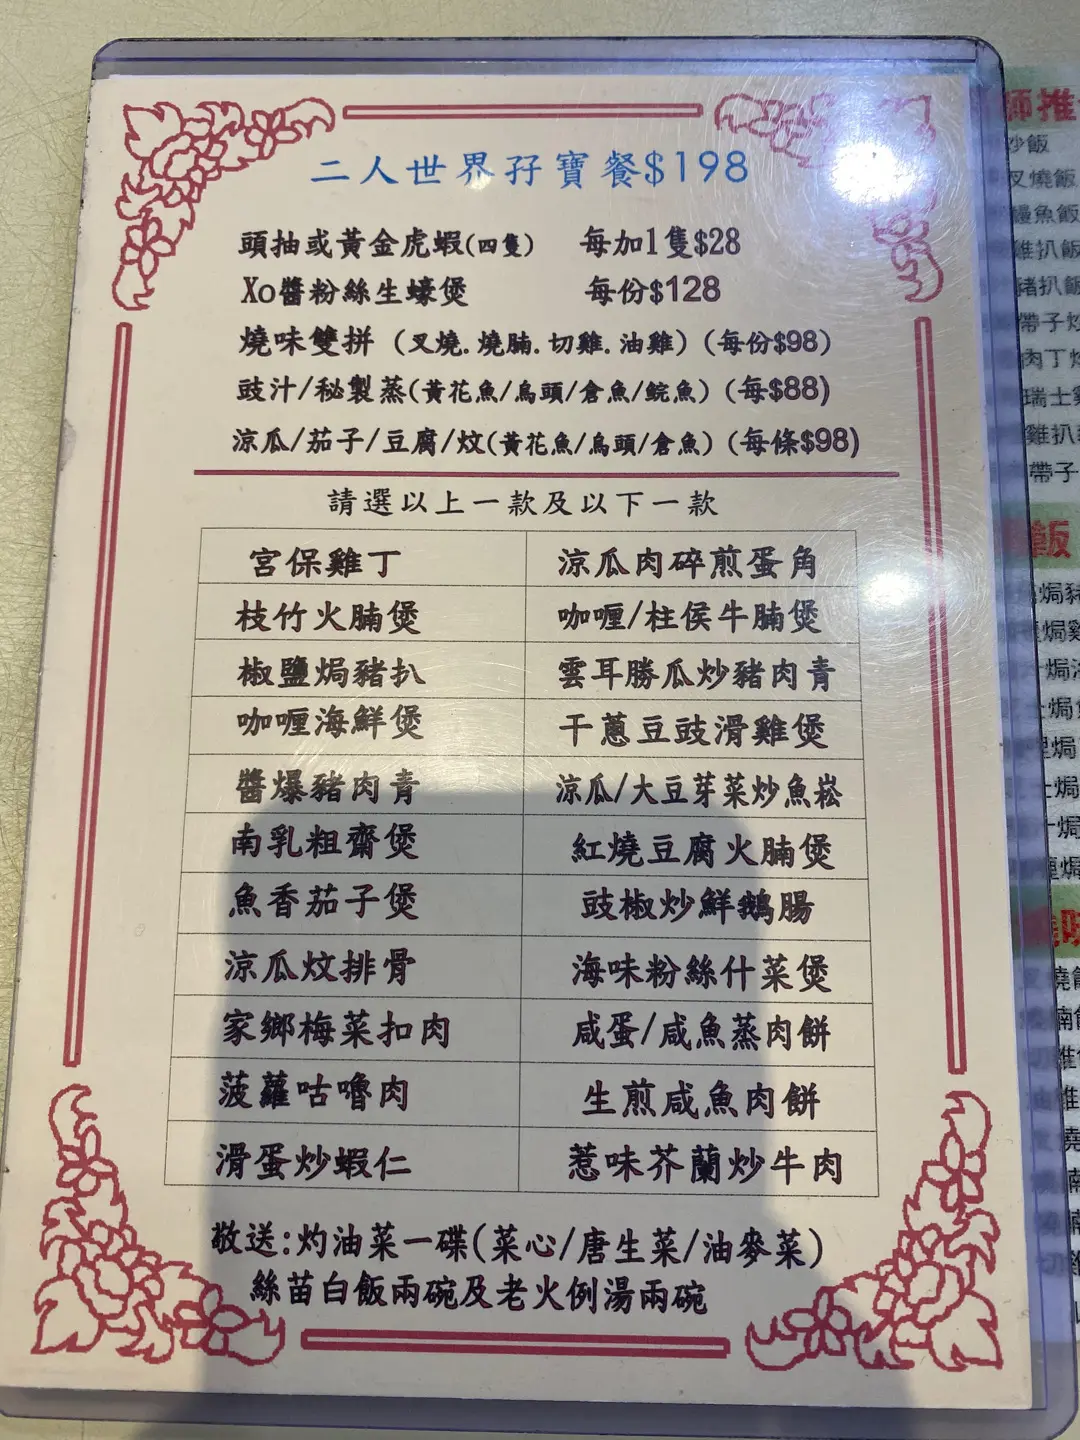 二人世界孖寶餐$198
頭抽或黃金虎蝦(四隻) 每加1隻$28
Xo醬粉絲生蠔煲 每份$128
燒味雙拼 (叉燒.燒腩.切雞.油雞) (每份$98)
豉汁/秘製蒸(黃花魚/烏頭/倉魚/鯇魚) (每$88)
涼瓜/茄子/豆腐/炆(黃花魚/烏頭/倉魚) (每條$98)
請選以上一款及以下一款
宮保雞丁 涼瓜肉碎煎蛋角
枝竹火腩煲 咖喱/柱侯牛腩煲
椒鹽焗豬扒 雲耳勝瓜炒豬肉青
咖喱海鮮煲 干蔥豆豉滑雞煲
醬爆豬肉青 涼瓜/大豆芽菜炒魚崧
南乳粗齋煲 紅燒豆腐火腩煲
魚香茄子煲 豉椒炒鮮鵝腸
涼瓜炆排骨 海味粉絲什菜煲
家鄉梅菜扣肉 咸蛋/咸魚蒸肉餅
菠蘿咕嚕肉 生煎咸魚肉餅
滑蛋炒蝦仁 惹味芥蘭炒牛肉
敬送:灼油菜一碟(菜心/唐生菜/油麥菜)
絲苗白飯兩碗及老火例湯兩碗
師推
炒飯
叉燒飯
鰻魚飯
雞扒飯
豬扒飯
帶子炒
肉丁炒
瑞士雞
雞扒
帶子
飯